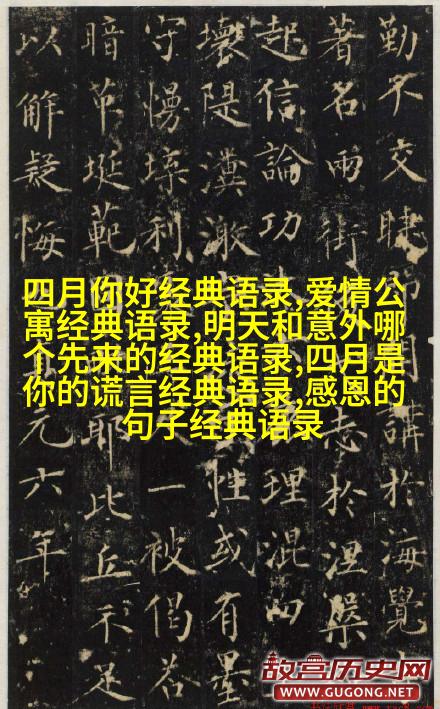 勤不交睫 用講於海覺
著名兩街 志於涅槃
起信論功 理混四
壞隄 激 性或有墨
守慢 利 一被偈若
暗 埏範 耶此丘不足
以解疑悔 元六年
四月你好经典语录,爱情公
寓经典语录,明天和意外哪
个先来的经典语录,四月是
你的谎言经典语录,感恩的
句子经典语录
故宫历史网
WWW.GUGONG.NET